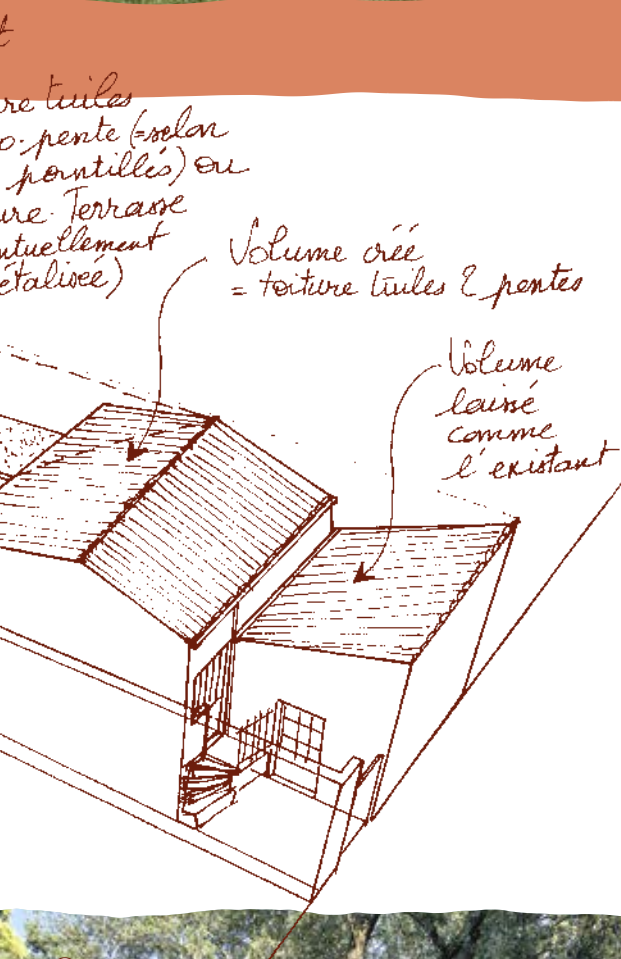 t
re tuiles
o-pente (=selon
pointillés) ou
ure Terrasse
ntuellement
étalisée)
Volume créé
= toiture tuiles 2 pentes
Volume
laissé
comme
l'existant